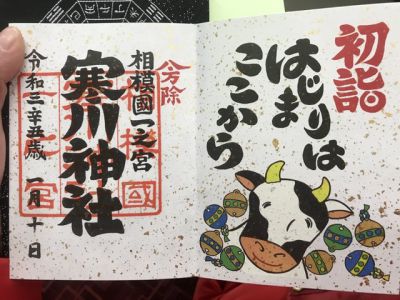 初詣
はじまりは
ここから
八方除
相模國一之宮
寒川神社
令和三辛丑歳 一月十日